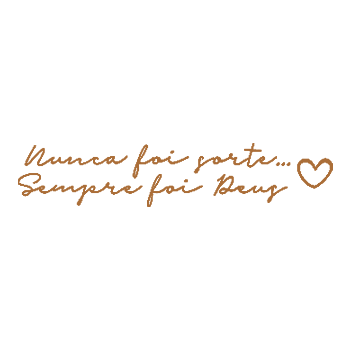 Nunca foi sorte...
Sempre foi Deus